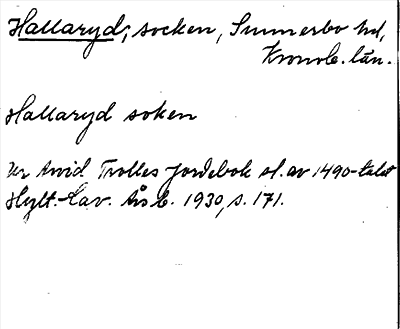 Hallaryd, socken, Sunnerbo hd,
Kronob. län.
Hallaryd soken
Ur Arvid Trolles jordebok sl. av 1490-talet
Hylt.-Cav. Årsb. 1930, s. 171.